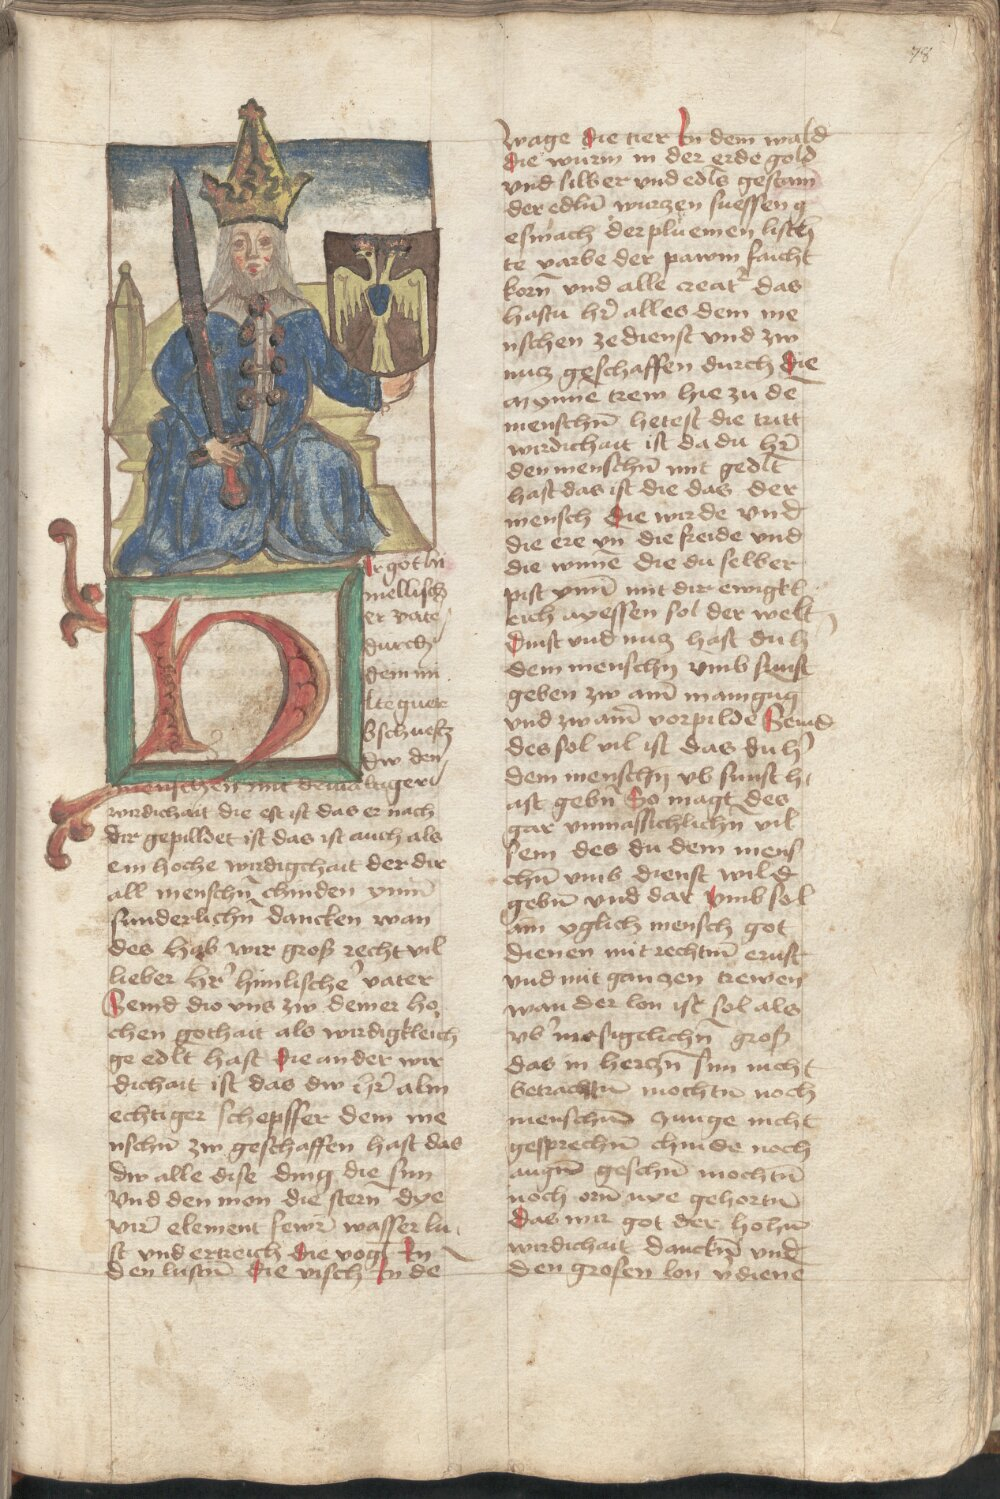 78
H
Er got hi
mellisch
er vate
durch
dem mi
lte guet
bschueff
dw den
menschen mit drivaltiger
wirdichait die est ist das er nach
dir gepilldet ist das ist auch als
ein hoche wirdigchait der dir
all menschn̄ chinden ymm̄
sunderlichn̄ dancken wan
des hab wir groß recht vil
lieber hr̄ himlische vater
Seind dw vns zw deiner ho
chen gothait als wirdigkleich
ge edlt hast Die ander wir
dichait ist das dw hr̄ alm
echtiger schepffer dem me
nschn̄ zw geschaffen hast das
dw alle dise ding die sun
vnd den mon die stern dye
vir element fewr wasser lu
ft vnd ertreich Die vogl In
den luftn̄ Die visch In de
wage Die tier In dem wald
Die wurm in der erde gold
vnd silber vnd edls gestain
der edln̄ wurtzen suessen g
esmach der pluemen liech
te varbe der pawm frucht
korn vnd alle creat͛ das
hastu hr̄ alles dem me
nschen ze dienst vnd zw
nutz geschaffen durch Die
mynne trew hie zu de
menschn̄ hetest die tritt
wirdichait ist da du hr̄
den menschn̄ mit gedlt
hast das ist die das der
mensch Die wirde vnd
die ere vn̄ die freide vnd
die wunne die du selber
pist ymm̄ mit dir ewigkl
eich nyessen sol der welt
Dinst vnd nutz hast du h͛
dem menschn̄ vmb sunst
geben zw aim̄
vnd zw aim̄ vorpilde Seind
des sol vil ist das du h͛
dem menschn̄ vb sunst h
ast gebn̄ So magt des
gar vnmassichlichn̄ vil
sein des du dem mens
chn̄ vmb dienst wild
gebn̄ vnd dar vmb sol
ain yglich mensch got
dienen mit rechtm̄ ernst
vnd mit gantzen trewen
wan der lon ist sol als
vb͛ groß
das in hertzn̄ sin nicht
betrachtn̄ mochtn̄ noch
menschn̄ zunge nicht
gesprechn̄ chunde noch
augn̄ gesehn̄ mochtn̄
noch orn̄ nye gehortn̄
Das wir got der hohn̄
wirdichait danckn̄ vnd
den grosen lon v͛diene